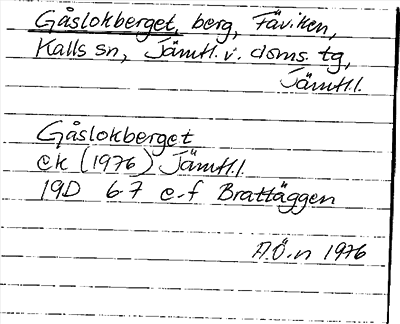 Gåslokberget, berg, Fäviken,
Kalls sn, Jämtl. v. doms. tg,
Jämtl.l.
Gåslokberget
ek (1976) Jämtl.l.
19D 6-7 e-f Brattäggen
A.Ö-n 1976